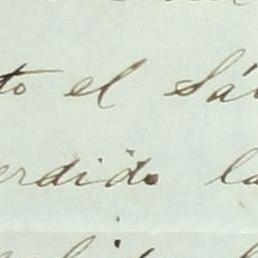 to el Sá
erdido la